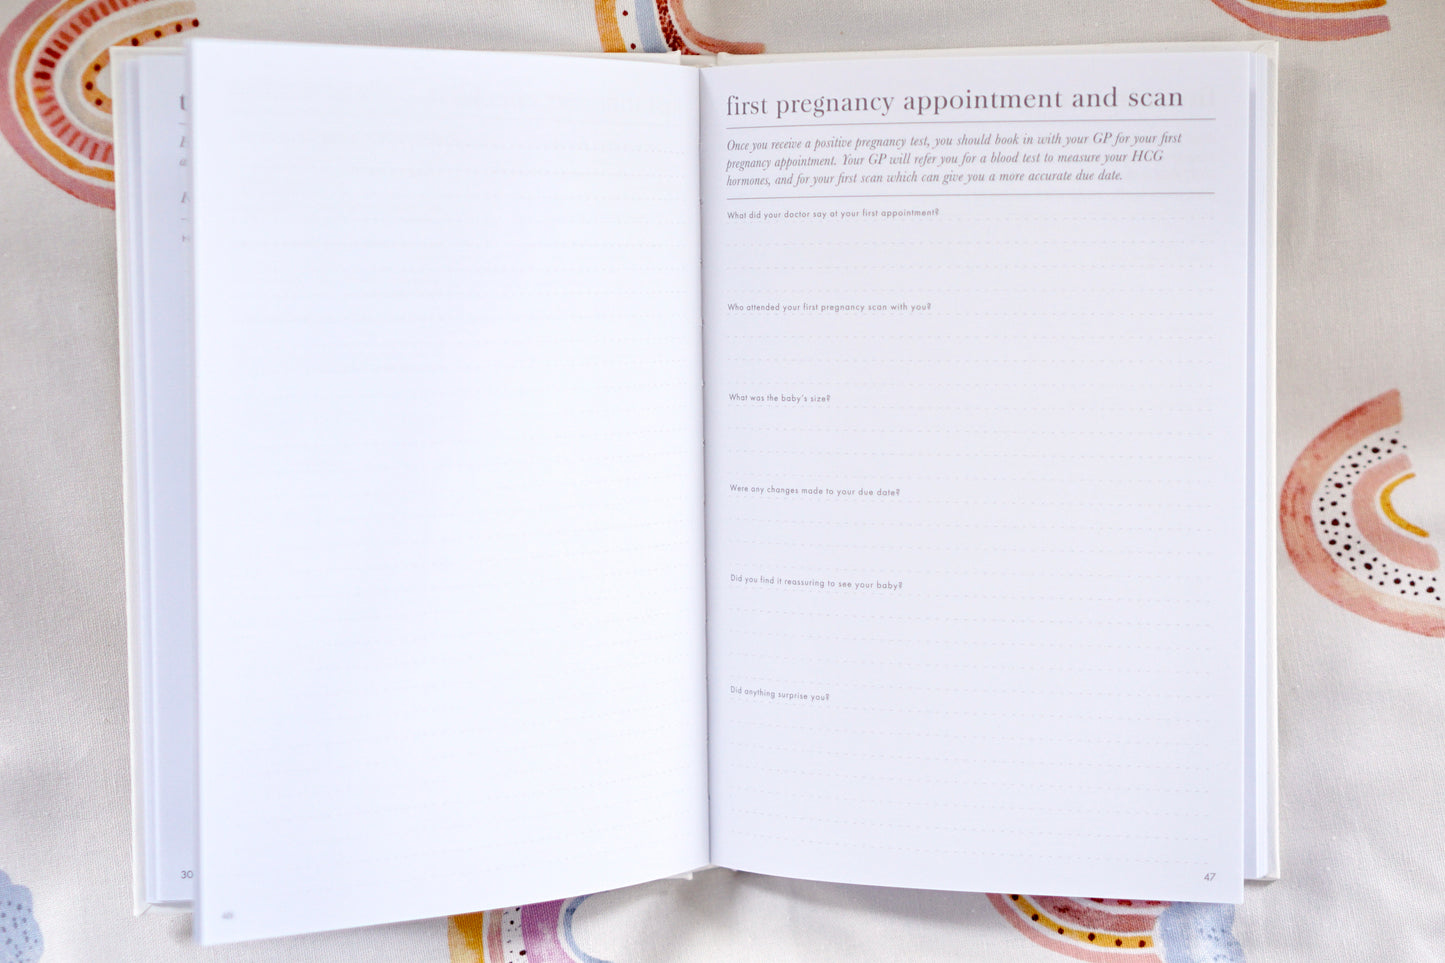 30
46
first pregnancy appointment and scan
Once you receive a positive pregnancy test, you should book in with your GP for your first
pregnancy appointment. Your GP will refer you for a blood test to measure your HCG
hormones, and for your first scan which can give you a more accurate due date.
What did your doctor say at your first appointment?
Who attended your first pregnancy scan with you?
What was the baby's size?
Were any changes made to your due date?
Did you find it reassuring to see your baby?
Did anything surprise you?
47